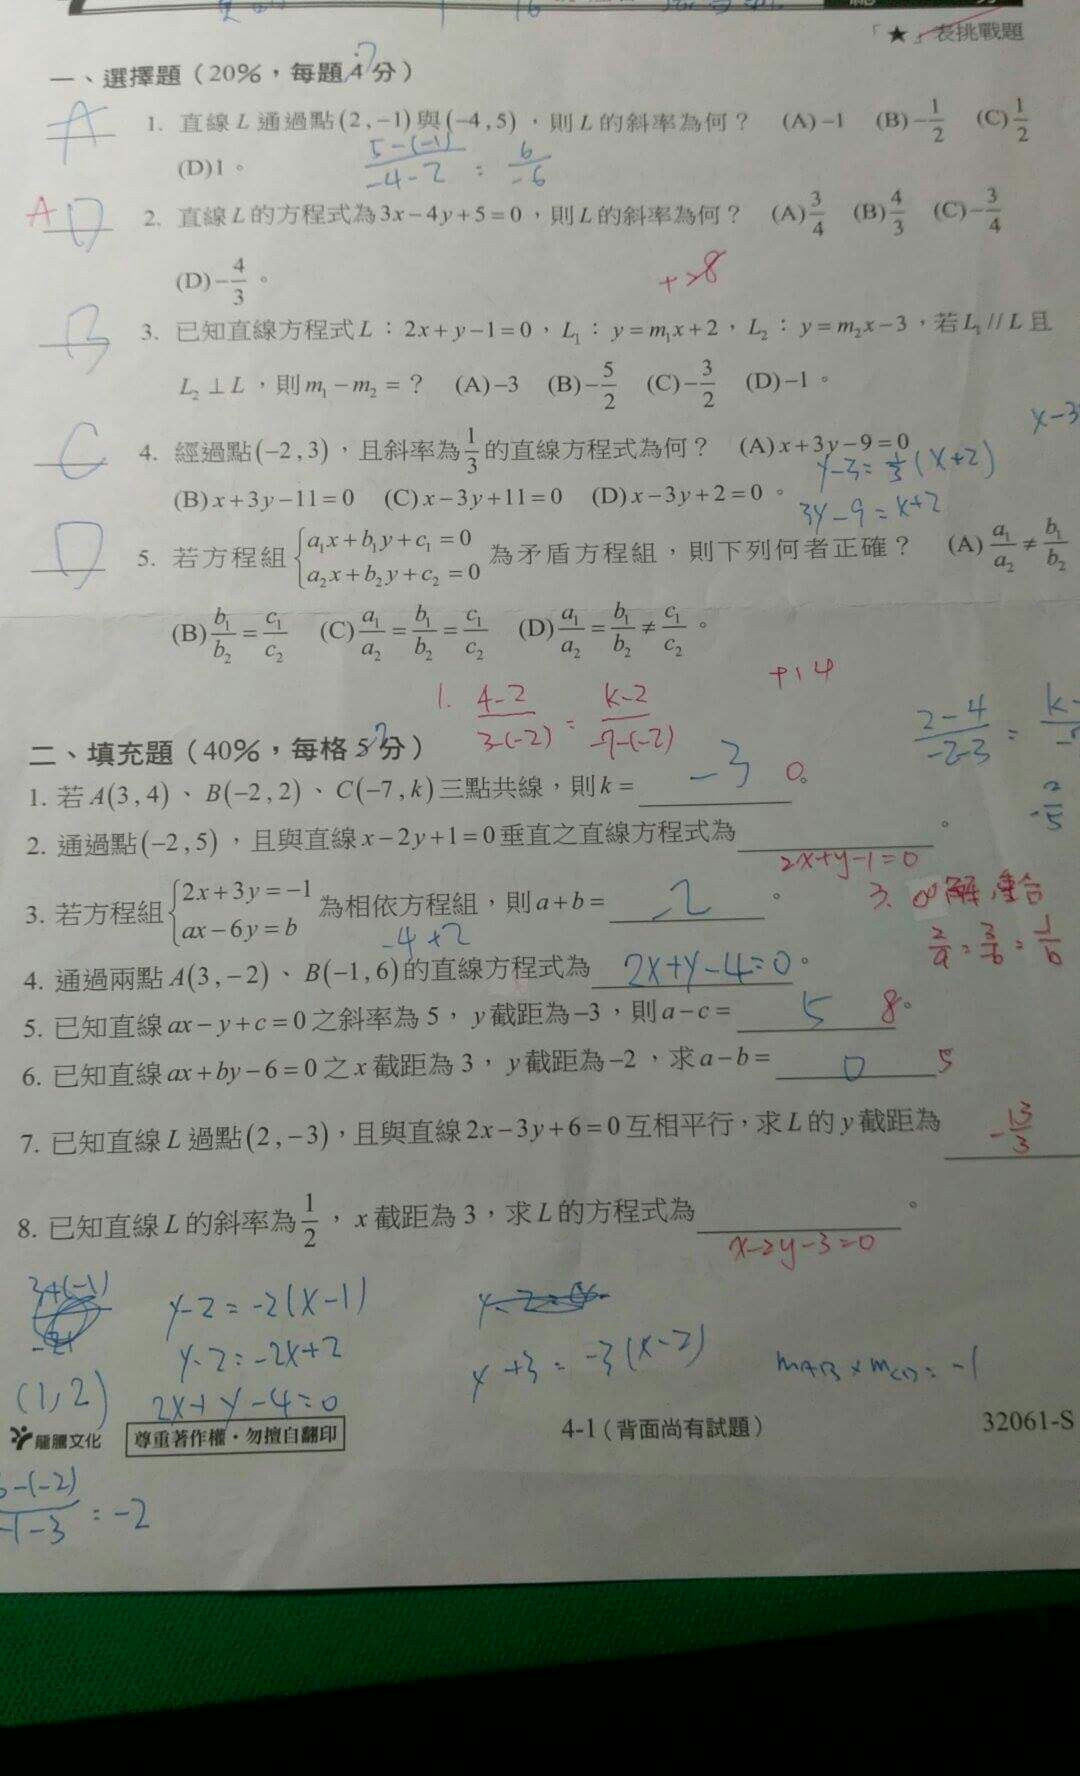 「★」表挑戰題
一、選擇題（20%，每題4分） 7
A 1. 直線 L 通過點(2,−1)與(−4,5)，則 L 的斜率為何？ (A)−1 (B)−1/2 (C)1/2
(D)1。 5-(-1)/-4-2 = 6/-6
A D 2. 直線 L 的方程式為3x−4y+5=0，則 L 的斜率為何？ (A)3/4 (B)4/3 (C)−3/4
(D)−4/3。 +28
B 3. 已知直線方程式 L：2x+y−1=0，L₁：y=m₁x+2，L₂：y=m₂x−3，若 L₁//L 且
L₂⊥L，則 m₁−m₂=？ (A)−3 (B)−5/2 (C)−3/2 (D)−1。
x-3
C 4. 經過點(−2,3)，且斜率為1/3的直線方程式為何？ (A)x+3y−9=0
y-3=1/3(x+2)
(B)x+3y−11=0 (C)x−3y+11=0 (D)x−3y+2=0。
3y-9=x+2
D 5. 若方程組{a₁x+b₁y+c₁=0
a₂x+b₂y+c₂=0 為矛盾方程組，則下列何者正確？ (A)a₁/a₂≠b₁/b₂
(B)b₁/b₂=c₁/c₂ (C)a₁/a₂=b₁/b₂=c₁/c₂ (D)a₁/a₂=b₁/b₂≠c₁/c₂。
+14
1. 4-2/3-(-2) = k-2/-7-(-2)
2-4/-2-3 =
二、填充題（40%，每格5分） 7
1. 若 A(3,4)、B(−2,2)、C(−7,k)三點共線，則 k= -3 0。
-2/5
2. 通過點(−2,5)，且與直線 x−2y+1=0 垂直之直線方程式為 。
2x+y-1=0
3. 若方程組{2x+3y=−1
ax−6y=b 為相依方程組，則 a+b= -2 。
3. ∞解,重合
2/a = 3/-6 = -1/b
-4+2
4. 通過兩點 A(3,−2)、B(−1,6)的直線方程式為 2x+y-4=0。
5. 已知直線 ax−y+c=0 之斜率為 5，y 截距為−3，則 a−c= 5 8。
6. 已知直線 ax+by−6=0 之 x 截距為 3，y 截距為−2，求 a−b= 0 5
7. 已知直線 L 過點(2,−3)，且與直線 2x−3y+6=0 互相平行，求 L 的 y 截距為 -13/3
8. 已知直線 L 的斜率為1/2，x 截距為 3，求 L 的方程式為 。
x-2y-3=0
y-2=-2(x-1)
y-2=-2x+2
y+3=-3(x-2)
mAB×mCD=-1
(1,2) 2x+y-4=0
龍騰文化 尊重著作權・勿擅自翻印 4-1（背面尚有試題） 32061-S
6-(-2)/-1-3 = -2